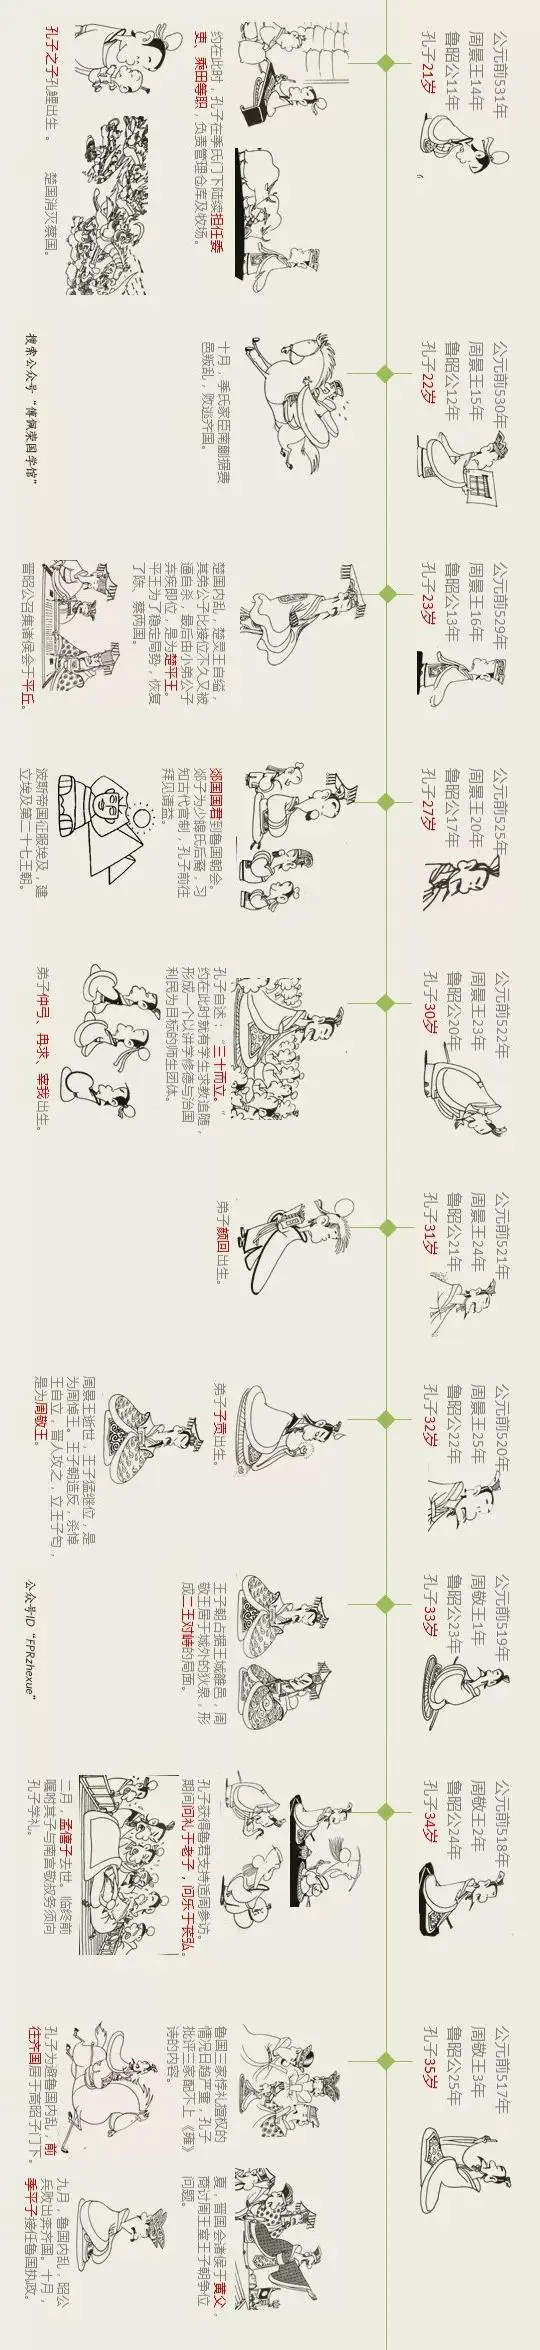 公元前531年
周景王14年
鲁昭公11年
孔子21岁
约在此时，孔子在季氏门下陆续担任委
吏、乘田等职，负责管理仓库及牧场。
孔子之子孔鲤出生。
楚国消灭蔡国。
公元前530年
周景王15年
鲁昭公12年
孔子22岁
十月，季氏家臣南蒯据费
邑叛乱，败逃齐国。
搜索公众号“傅佩荣国学馆”
公元前529年
周景王16年
鲁昭公13年
孔子23岁
楚国内乱，楚灵王自缢，
其弟公子比接位不久又被
逼自杀，最后由小弟公子
弃疾即位，是为楚平王。
平王为了稳定局势，恢复
了陈、蔡两国。
晋昭公召集诸侯会于平丘。
公元前525年
周景王20年
鲁昭公17年
孔子27岁
郯国国君到鲁国朝会。
郯子为少皞氏后裔，习
知古代官制，孔子前往
拜见请益。
波斯帝国征服埃及，建
立埃及第二十七王朝。
公元前522年
周景王23年
鲁昭公20年
孔子30岁
孔子自述：“三十而立。”
约在此时就有学生求教追随，
形成一个以讲学修德与治国
利民为目标的师生团体。
弟子仲弓、冉求、宰我出生。
公元前521年
周景王24年
鲁昭公21年
孔子31岁
弟子颜回出生。
公元前520年
周景王25年
鲁昭公22年
孔子32岁
弟子子贡出生。
周景王逝世，王子猛继位，是
为周悼王。王子朝造反，杀悼
王自立，晋人攻之，立王子匄，
是为周敬王。
公元前519年
周敬王1年
鲁昭公23年
孔子33岁
王子朝占据王城雒邑，周
敬王居于城外的狄泉，形
成二王对峙的局面。
公众号ID“FPRzhexue”
公元前518年
周敬王2年
鲁昭公24年
孔子34岁
孔子获得鲁君支持适周参访。
期间问礼于老子，问乐于苌弘。
二月，孟僖子去世。临终前
嘱咐其子与南宫敬叔务须向
孔子学礼。
公元前517年
周敬王3年
鲁昭公25年
孔子35岁
鲁国三家悖礼擅权的
情况日趋严重，孔子
批评三家配不上《雍》
诗的内容。
夏，晋国会诸侯于黄父，
商讨周王室王子朝争位
问题。
孔子为避鲁国内乱，前
往齐国居于高昭子门下。
九月，鲁国内乱，昭公
兵败出奔齐国。十月，
季平子接任鲁国执政。